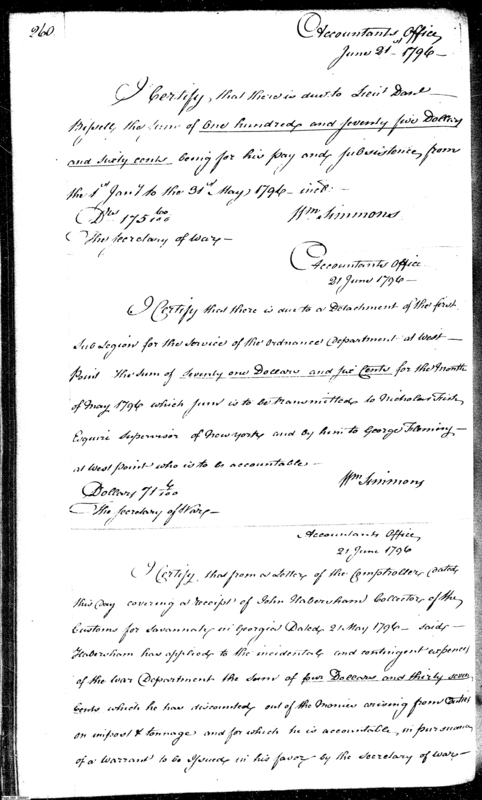 260
Accountants Office
June 21st 1796—
I Certify, that there is due to Lieut Danl
Bissell the sum of One hundred and seventy five Dollars
and sixty cents being for his pay and subsistence, from
the 1st Jany to the 31st May, 1796— incd.
Drs 175 60/100
Wm Simmons
The Secretary of War—
Accountants Office
21 June 1796—
I Certify that there is due to a Detachment of the first
Sub Legion for the Service of the Ordnance Department at West
Point the Sum of Seventy one Dollars and six Cents for the Month
of May 1796 which sum is to be transmitted to Nicholas Fish
Esquire Supervisor of New York and by him to George Fleming—
at West point who is to be accountable—
Dollars 71 6/100
Wm Simmons
The Secretary of War—
Accountants Office,
21 June 1796
I Certify, that from a Letter of the Comptroller, dated
this day covering a receipt of John Habersham Collector of the
Customs for Savannah in Georgia Dated 21 May 1796— said
Habersham has applied to the incidental and contingent expences
of the War Department the sum of four Dollars and thirty seven
Cents which he has discounted out of the Monies arising from
on impost & tonnage and for which he is accountable, in pursuance
of a warrant to be Issued in his favor by the Secretary of War—